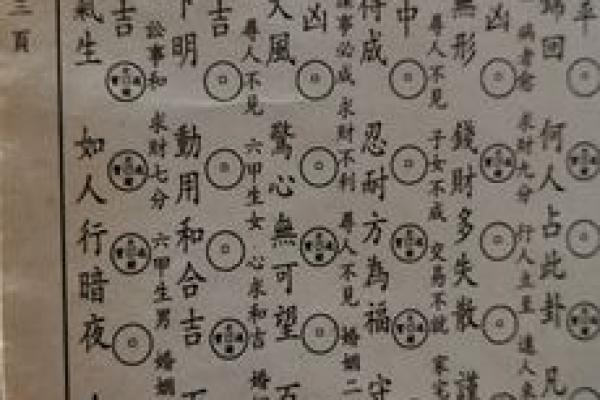 平
回 何人占此卦 凡
病者愈 求財九分 行人立至 遠人來
凶
無形 錢財多失散 謹
尋人不見 子女不成 交易不說 家宅
中
得成 忍耐方為福 守
事必成 求財不利 尋人不見 婚姻二
凶
大風 驚心無可望 百
尋人不見 六甲生女 心求和吉 婚
吉
明 動用和合吉
訟事和 求財七分 六甲生男 婚姻
吉
氣生 如人行暗夜
三頁